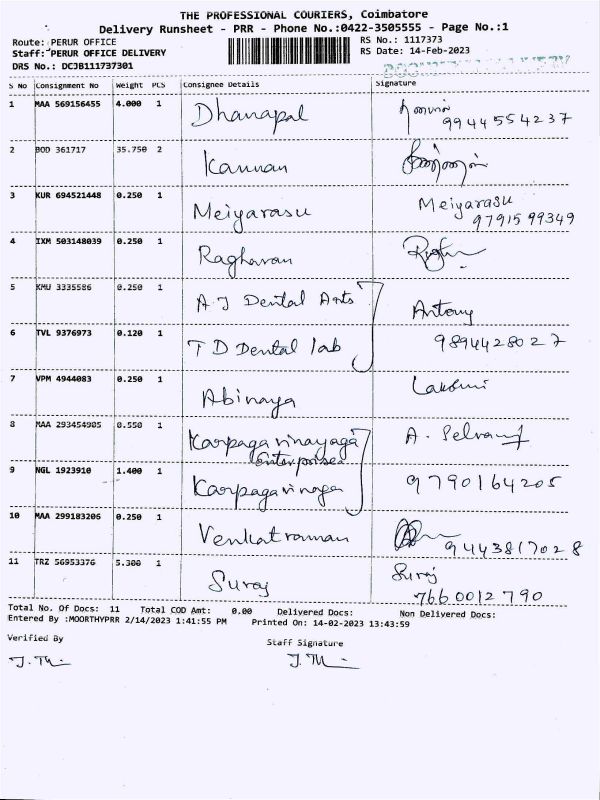 THE PROFESSIONAL COURIERS, Coimbatore
Delivery Runsheet - PRR - Phone No.:0422-3505555 - Page No.:1
Route: PERUR OFFICE
RS No.: 1117373
Staff: PERUR OFFICE DELIVERY
RS Date: 14-Feb-2023
DRS No.: DCJB111737301
S No Consignment No Weight PCS Consignee Details Signature
1 MAA 569156455 4.000 1 Dhanapal
9944554237
2 BOD 361717 35.750 2 Kannan
3 KUR 694521448 0.250 1 Meiyarasu Meiyarasu
9791599349
4 IXM 503148039 0.250 1 Raghavan
5 KMU 3335586 0.250 1 A J Dental Arts Antony
6 TVL 9376973 0.120 1 T D Dental lab 9894428027
7 VPM 4944083 0.250 1 Abinaya Lakshmi
8 MAA 293454905 0.550 1 Karpaga vinayaga A.
Enterprises
9 NGL 1923910 1.400 1 Karpaga vinayaga 9790164205
10 MAA 299183206 0.250 1 Venkatraman 9443817028
11 TRZ 56953376 5.300 1 Suraj Suraj
7660012790
Total No. Of Docs: 11 Total COD Amt: 0.00 Delivered Docs: Non Delivered Docs:
Entered By :MOORTHYPRR 2/14/2023 1:41:55 PM Printed On: 14-02-2023 13:43:59
Verified By Staff Signature